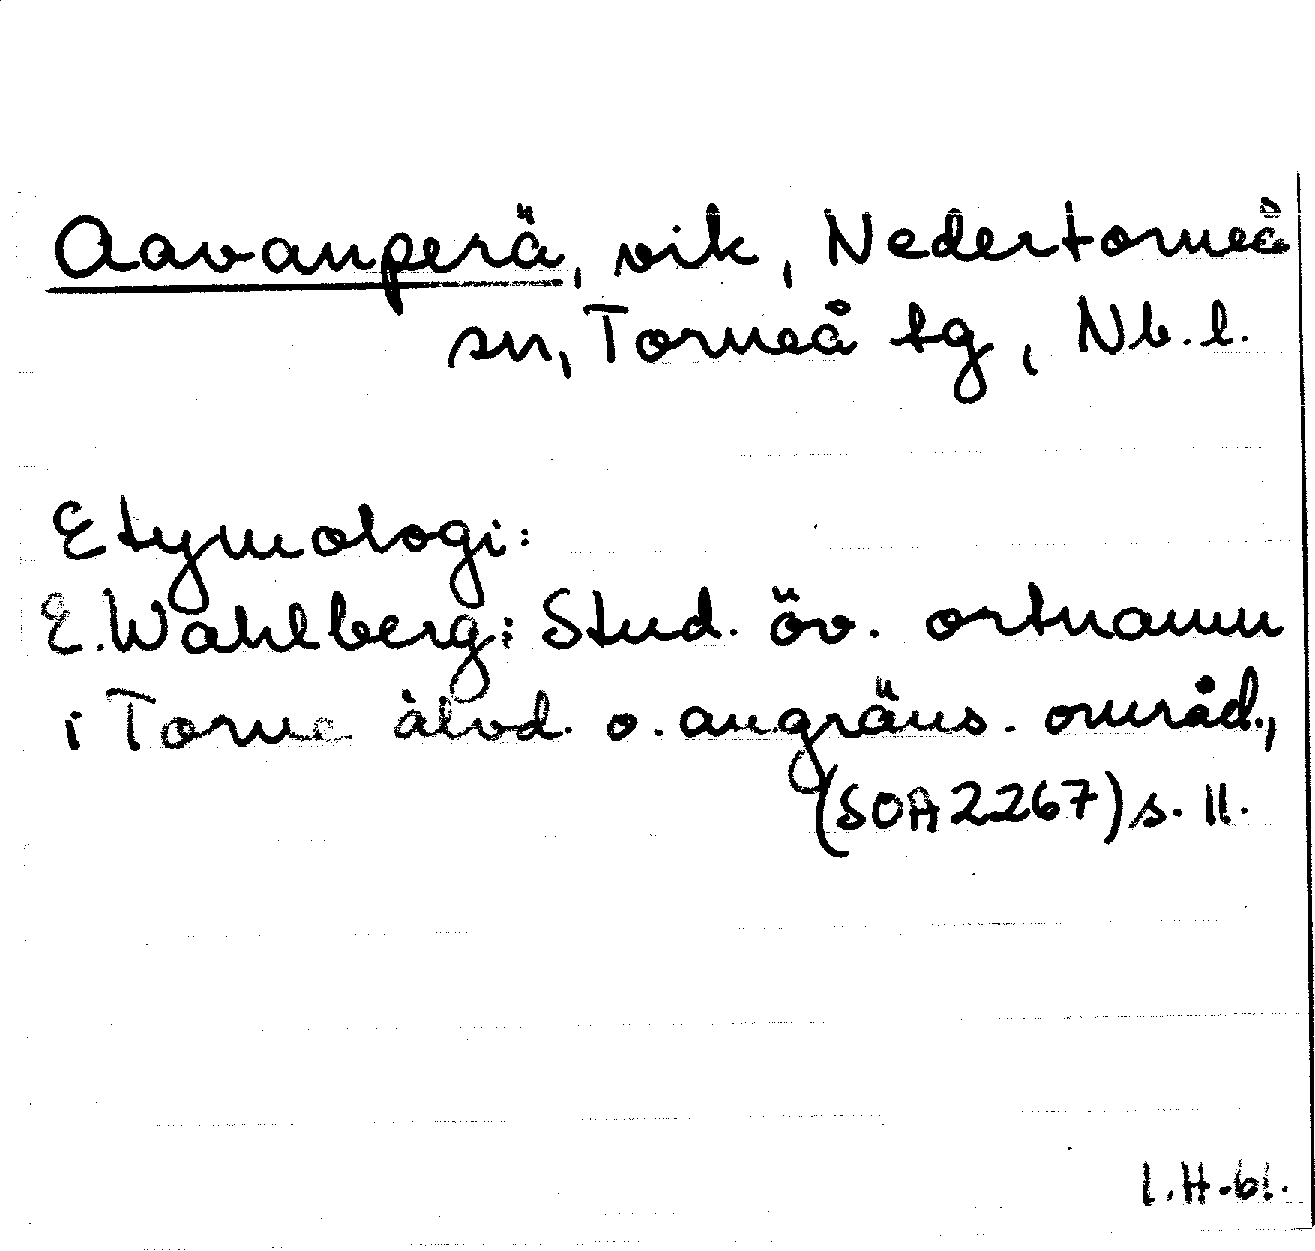 Aavanperä, vik, Nedertorneå
sn, Torneå tg, Nb. l.
Etymologi:
E. Wahlberg: Stud. öv. ortnamn
i Torne älvd. o. angräns. områd.,
(SOA 2267) s. 11.
I.H.61.